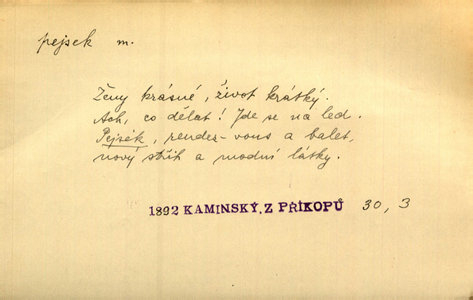 pejsek m.
Ženy krásné, život krátký.
Ach, co dělat! Jde se na led.
Pejsek, rendez-vous a balet,
nový střih a modní látky.
1892 KAMINSKÝ, Z PŘÍKOPŮ 30, 3